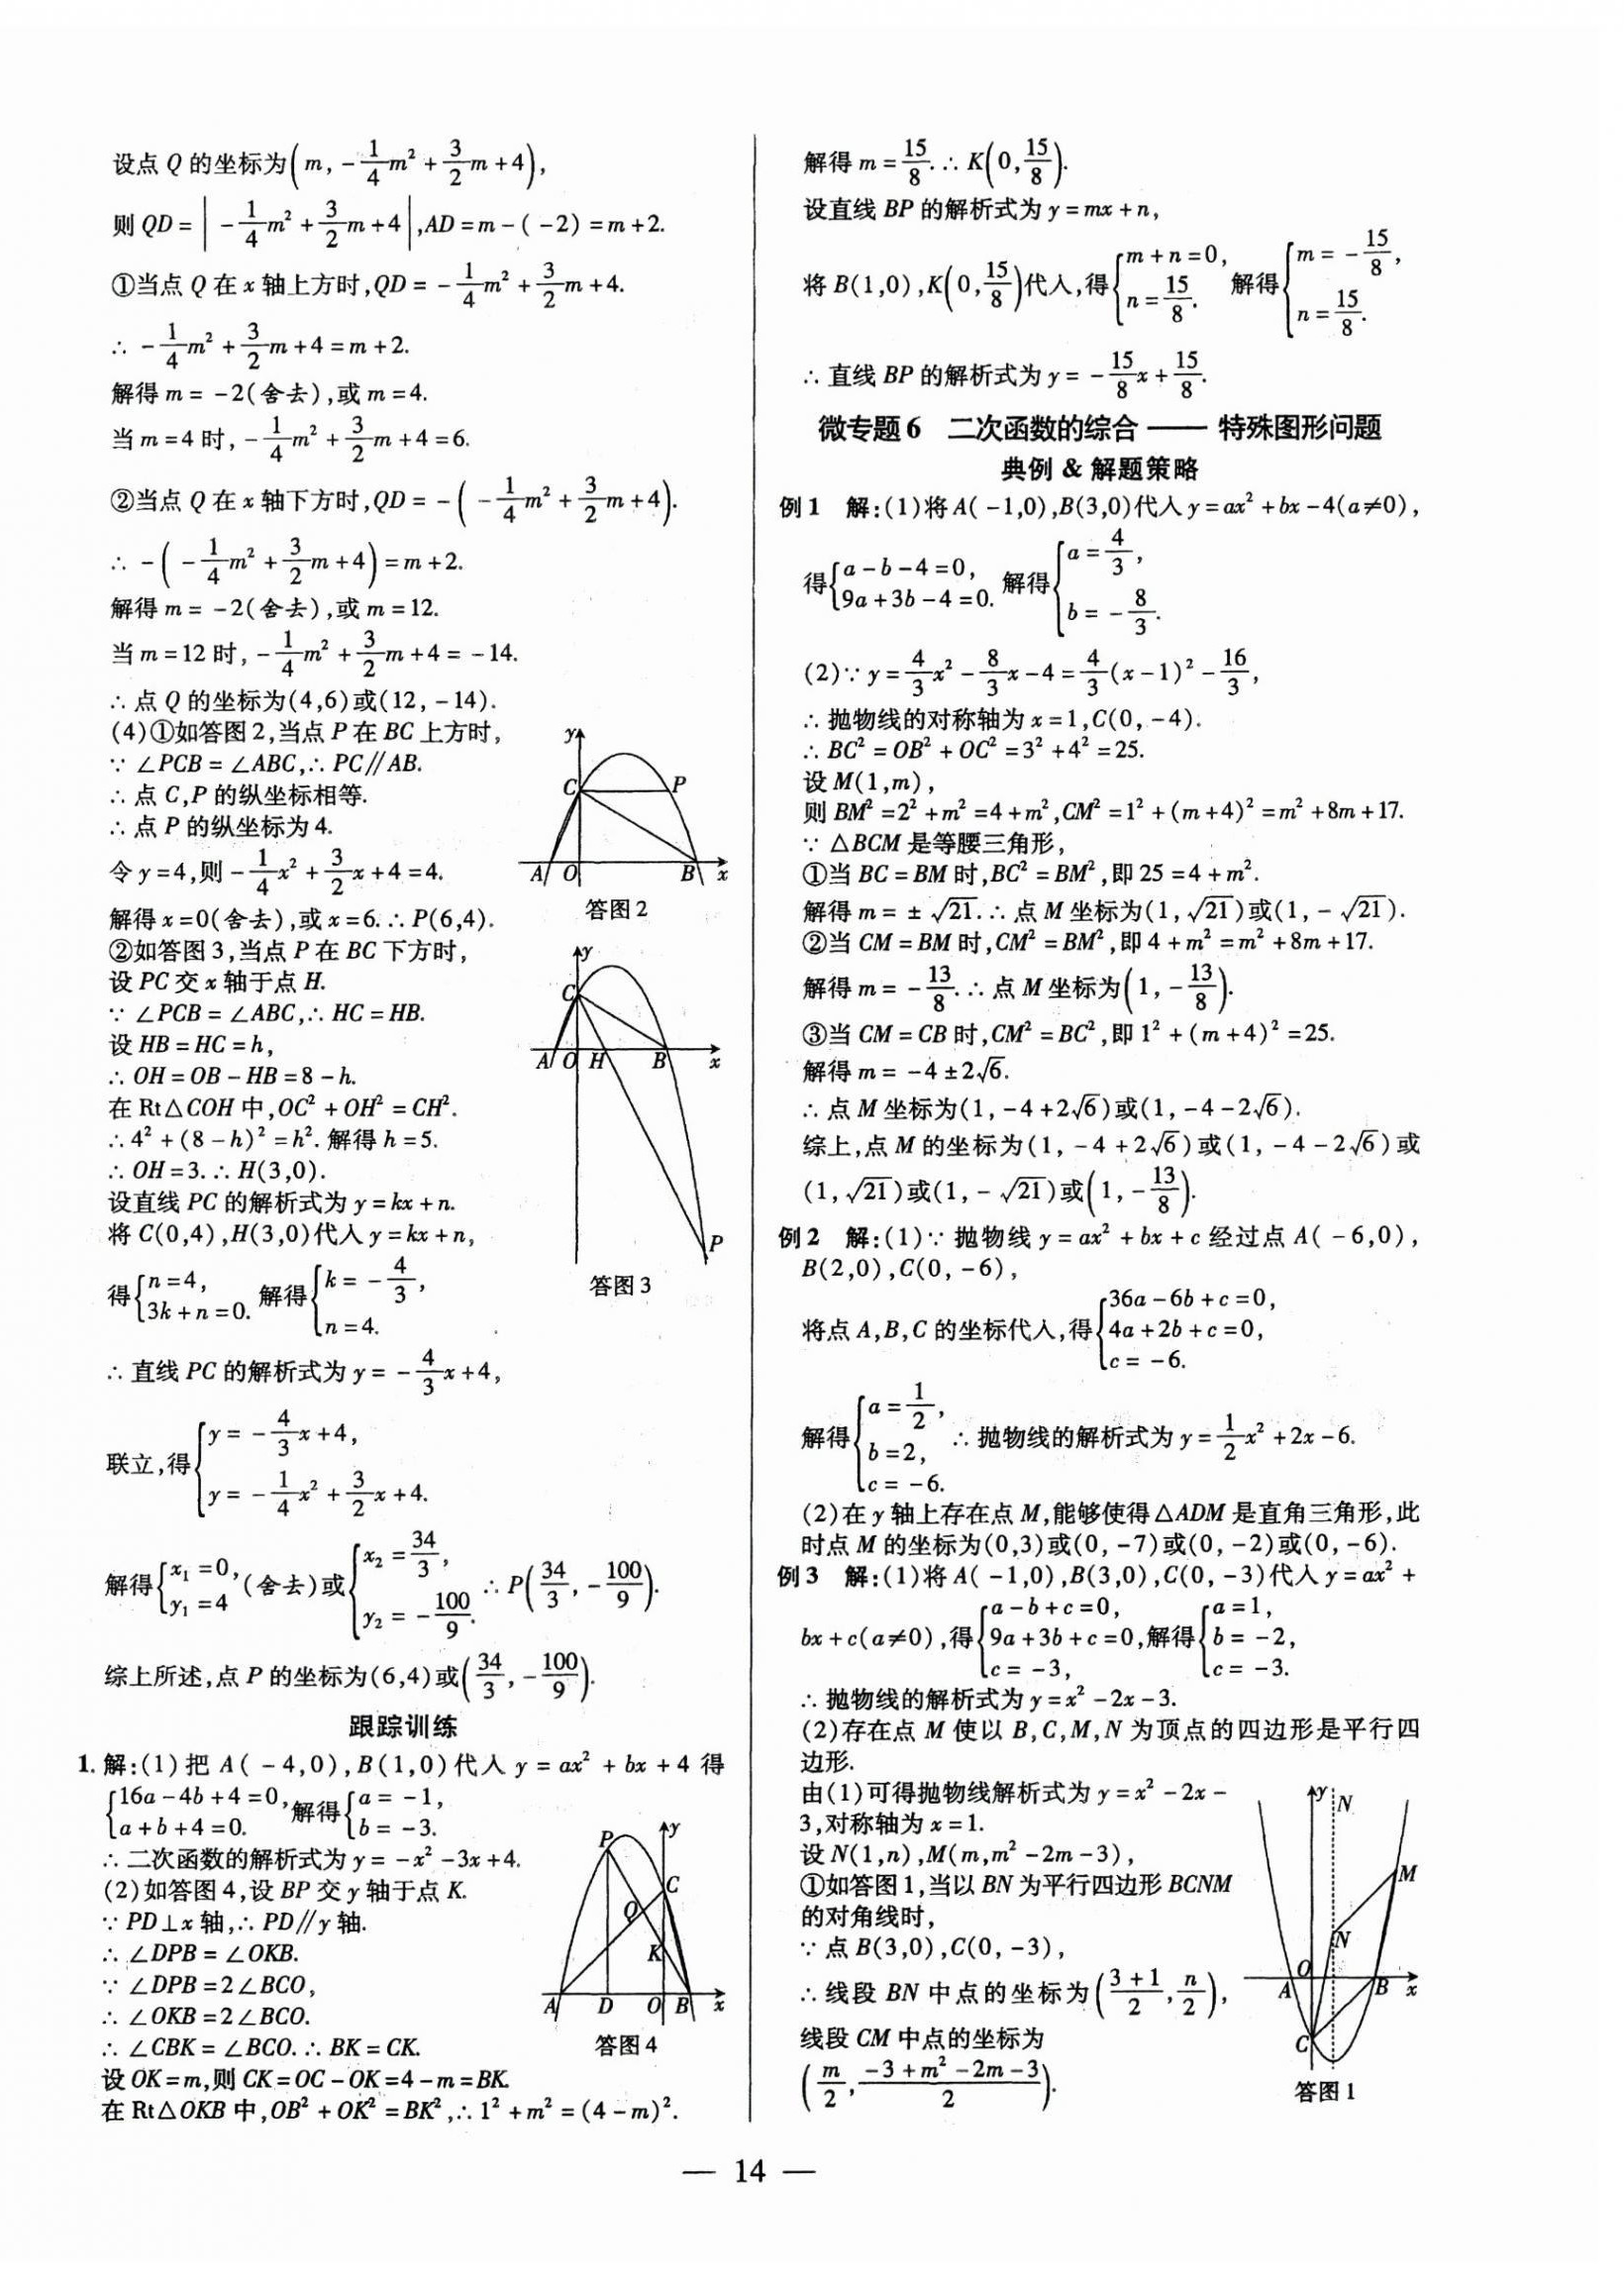 设点 Q 的坐标为(m, -1/4m² + 3/2m + 4),
则 QD = | -1/4m² + 3/2m + 4 |, AD = m - ( -2) = m + 2.
①当点 Q 在 x 轴上方时, QD = -1/4m² + 3/2m + 4.
∴ -1/4m² + 3/2m + 4 = m + 2.
解得 m = -2(舍去),或 m = 4.
当 m = 4 时, -1/4m² + 3/2m + 4 = 6.
②当点 Q 在 x 轴下方时, QD = -( -1/4m² + 3/2m + 4).
∴ -( -1/4m² + 3/2m + 4) = m + 2.
解得 m = -2(舍去),或 m = 12.
当 m = 12 时, -1/4m² + 3/2m + 4 = -14.
∴ 点 Q 的坐标为(4,6)或(12, -14).
(4)①如答图2,当点 P 在 BC 上方时,
∵ ∠PCB = ∠ABC,∴ PC∥AB.
∴ 点 C,P 的纵坐标相等.
∴ 点 P 的纵坐标为 4.
令 y = 4,则 -1/4x² + 3/2x + 4 = 4.
解得 x = 0(舍去),或 x = 6. ∴ P(6,4).
②如答图3,当点 P 在 BC 下方时,
设 PC 交 x 轴于点 H.
∵ ∠PCB = ∠ABC,∴ HC = HB.
设 HB = HC = h,
∴ OH = OB - HB = 8 - h.
在 Rt△COH 中,OC² + OH² = CH².
∴ 4² + (8 - h)² = h². 解得 h = 5.
∴ OH = 3. ∴ H(3,0).
设直线 PC 的解析式为 y = kx + n.
将 C(0,4),H(3,0)代入 y = kx + n,
得{n = 4, 3k + n = 0. 解得{k = -4/3, n = 4.
∴ 直线 PC 的解析式为 y = -4/3x + 4,
联立,得{y = -4/3x + 4, y = -1/4x² + 3/2x + 4.
解得{x₁ = 0, y₁ = 4 (舍去)或{x₂ = 34/3, y₂ = -100/9. ∴ P(34/3, -100/9).
综上所述,点 P 的坐标为(6,4)或(34/3, -100/9).
y C P A O B x
答图2
y C A O H B x P
答图3
跟踪训练
1. 解:(1)把 A( -4,0),B(1,0)代入 y = ax² + bx + 4 得
{16a - 4b + 4 = 0, a + b + 4 = 0. 解得{a = -1, b = -3.
∴ 二次函数的解析式为 y = -x² - 3x + 4.
(2)如答图4,设 BP 交 y 轴于点 K.
∵ PD⊥x 轴,∴ PD∥y 轴.
∴ ∠DPB = ∠OKB.
∵ ∠DPB = 2∠BCO,
∴ ∠OKB = 2∠BCO.
∴ ∠CBK = ∠BCO. ∴ BK = CK.
设 OK = m,则 CK = OC - OK = 4 - m = BK.
在 Rt△OKB 中,OB² + OK² = BK²,∴ 1² + m² = (4 - m)².
P y C Q K A D O B x
答图4
解得 m = 15/8. ∴ K(0, 15/8).
设直线 BP 的解析式为 y = mx + n,
将 B(1,0),K(0, 15/8)代入,得{m + n = 0, n = 15/8. 解得{m = -15/8, n = 15/8.
∴ 直线 BP 的解析式为 y = -15/8x + 15/8.
微专题6 二次函数的综合 —— 特殊图形问题
典例 & 解题策略
例1 解:(1)将 A( -1,0),B(3,0)代入 y = ax² + bx - 4(a≠0),
得{a - b - 4 = 0, 9a + 3b - 4 = 0. 解得{a = 4/3, b = -8/3.
(2)∵ y = 4/3x² - 8/3x - 4 = 4/3(x - 1)² - 16/3,
∴ 抛物线的对称轴为 x = 1,C(0, -4).
∴ BC² = OB² + OC² = 3² + 4² = 25.
设 M(1,m),
则 BM² = 2² + m² = 4 + m²,CM² = 1² + (m + 4)² = m² + 8m + 17.
∵ △BCM 是等腰三角形,
①当 BC = BM 时,BC² = BM²,即 25 = 4 + m².
解得 m = ± √21. ∴ 点 M 坐标为(1, √21)或(1, - √21).
②当 CM = BM 时,CM² = BM²,即 4 + m² = m² + 8m + 17.
解得 m = -13/8. ∴ 点 M 坐标为(1, -13/8).
③当 CM = CB 时,CM² = BC²,即 1² + (m + 4)² = 25.
解得 m = -4 ± 2√6.
∴ 点 M 坐标为(1, -4 + 2√6)或(1, -4 - 2√6).
综上,点 M 的坐标为(1, -4 + 2√6)或(1, -4 - 2√6)或
(1, √21)或(1, - √21)或(1, -13/8).
例2 解:(1)∵ 抛物线 y = ax² + bx + c 经过点 A( -6,0),
B(2,0),C(0, -6),
将点 A,B,C 的坐标代入,得{36a - 6b + c = 0, 4a + 2b + c = 0, c = -6.
解得{a = 1/2, b = 2, c = -6. ∴ 抛物线的解析式为 y = 1/2x² + 2x - 6.
(2)在 y 轴上存在点 M,能够使得△ADM 是直角三角形,此
时点 M 的坐标为(0,3)或(0, -7)或(0, -2)或(0, -6).
例3 解:(1)将 A( -1,0),B(3,0),C(0, -3)代入 y = ax² +
bx + c(a≠0),得{a - b + c = 0, 9a + 3b + c = 0, c = -3, 解得{a = 1, b = -2, c = -3.
∴ 抛物线的解析式为 y = x² - 2x - 3.
(2)存在点 M 使以 B,C,M,N 为顶点的四边形是平行四
边形.
由(1)可得抛物线解析式为 y = x² - 2x -
3,对称轴为 x = 1.
设 N(1,n),M(m,m² - 2m - 3),
①如答图1,当以 BN 为平行四边形 BCNM
的对角线时,
∵ 点 B(3,0),C(0, -3),
∴ 线段 BN 中点的坐标为((3 + 1)/2, n/2),
线段 CM 中点的坐标为
(m/2, (-3 + m² - 2m - 3)/2).
y N M N O A B x C
答图1
— 14 —